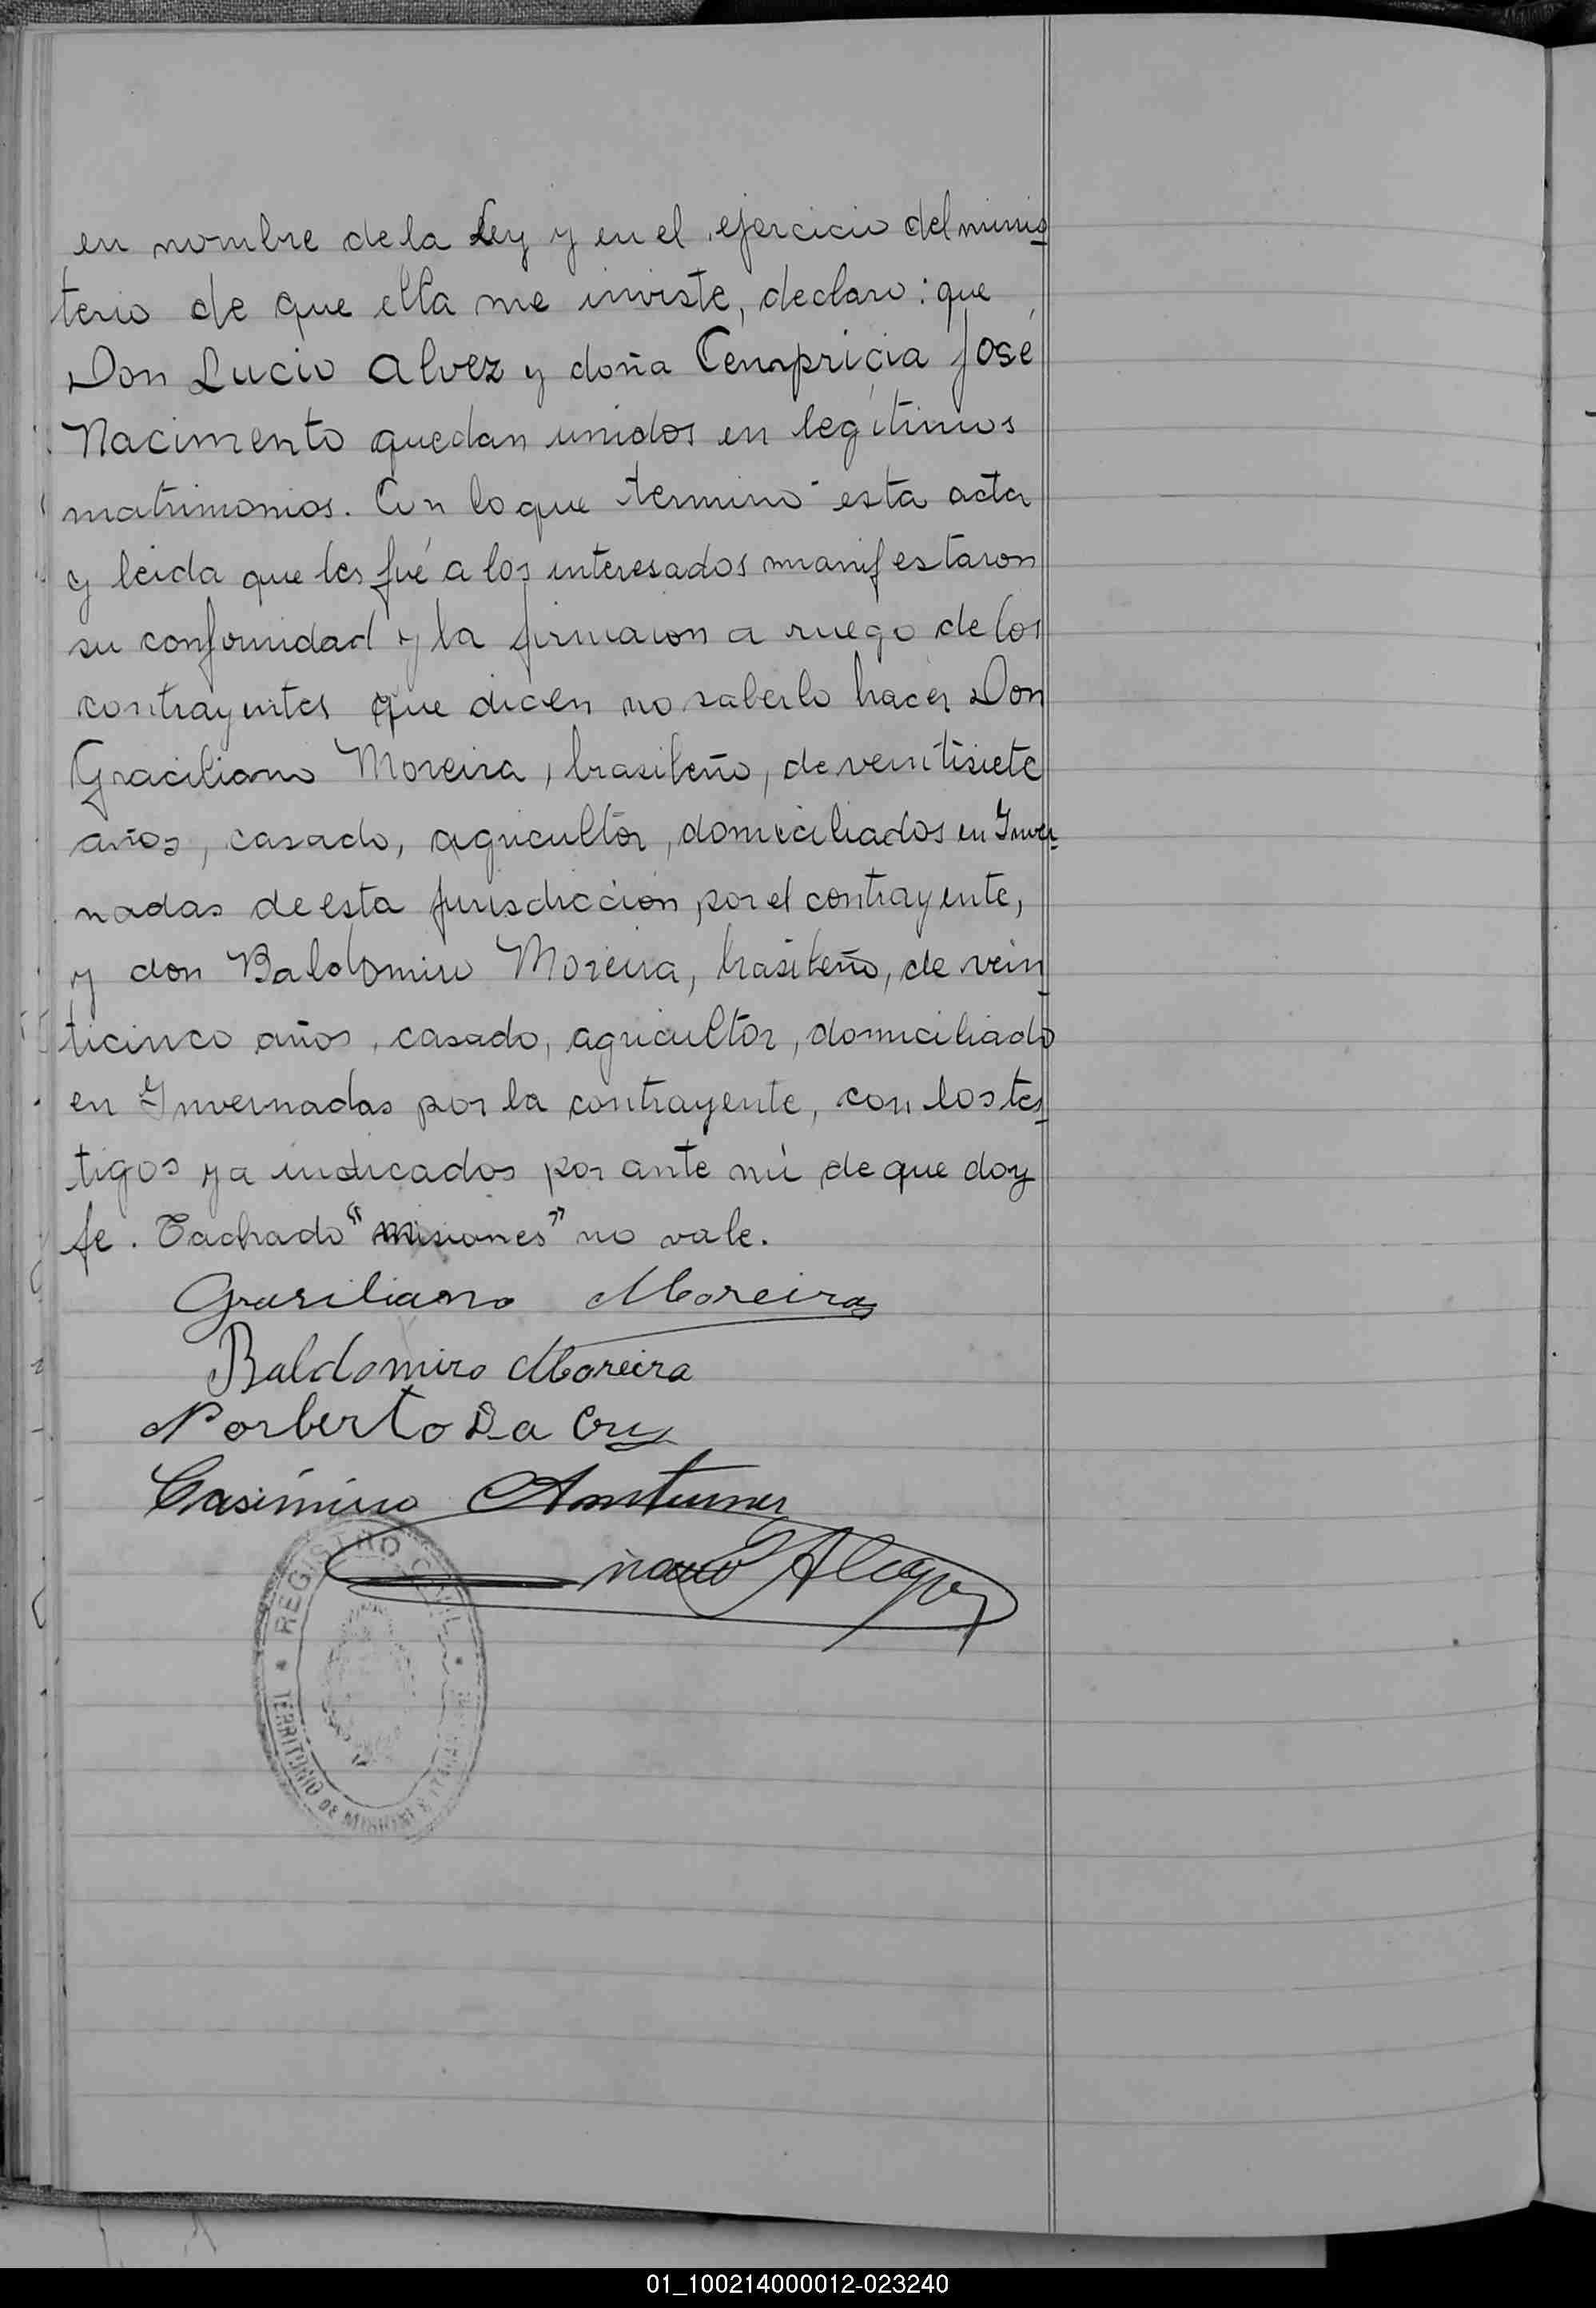 en nombre de la Ley y en el ejercicio del minis
terio de que ella me inviste, declaro: que
Don Lucio Alvez y doña Cempricia José
Nacimento quedan unidos en legítimos
matrimonios. Con lo que termino esta acta
y leida que les fué a los interesados manifestaron
su conformidad y la firmaron a ruego de los
contrayentes que dicen no saberlo hacer Don
Graciliano Moreira, brasileño, de venitisiete
años, casado, agricultor, domiciliados en Inver
nadas de esta jurisdicción por el contrayente,
y don Baldomiro Moreira, brasileño, de vein
ticinco años, casado, agricultor, domiciliado
en Invernadas por la contrayente, con los tes
tigos ya indicados por ante mí de que doy
fe. Tachado "misiones" no vale.
Grasiliano Moreira
Baldomiro Moreira
Norberto Da Cruz
Casimiro
REGISTRO CIVIL
TERRITORIO DE MISIONES
01_100214000012-023240